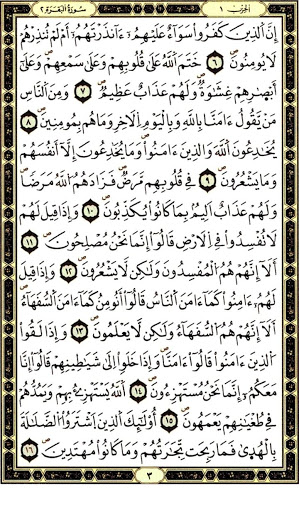 الجزء ١
سورة البقرة ٢
إن الذين كفروا سواء عليهم ءأنذرتهم أم لم تنذرهم
لا يؤمنون ٦ ختم الله على قلوبهم وعلى سمعهم وعلى
أبصرهم غشوة ولهم عذاب عظيم ٧ ومن الناس
من يقول ءامنا بالله وباليوم الاخر وما هم بمؤمنين ٨
يخدعون الله والذين ءامنوا وما يخدعون إلا أنفسهم
وما يشعرون ٩ في قلوبهم مرض فزادهم الله مرضا
ولهم عذاب أليم بما كانوا يكذبون ١٠ وإذا قيل لهم
لا تفسدوا في الأرض قالوا إنما نحن مصلحون ١١
ألا إنهم هم المفسدون ولكن لا يشعرون ١٢ وإذا قيل
لهم ءامنوا كما ءامن الناس قالوا أنؤمن كما ءامن السفهاء
ألا إنهم هم السفهاء ولكن لا يعلمون ١٣ وإذا لقوا
الذين ءامنوا قالوا ءامنا وإذا خلوا إلى شيطينهم قالوا إنا
معكم إنما نحن مستهزءون ١٤ الله يستهزئ بهم ويمدهم
في طغينهم يعمهون ١٥ أولئك الذين اشتروا الضللة
بالهدى فما ربحت تجرتهم وما كانوا مهتدين ١٦
٣